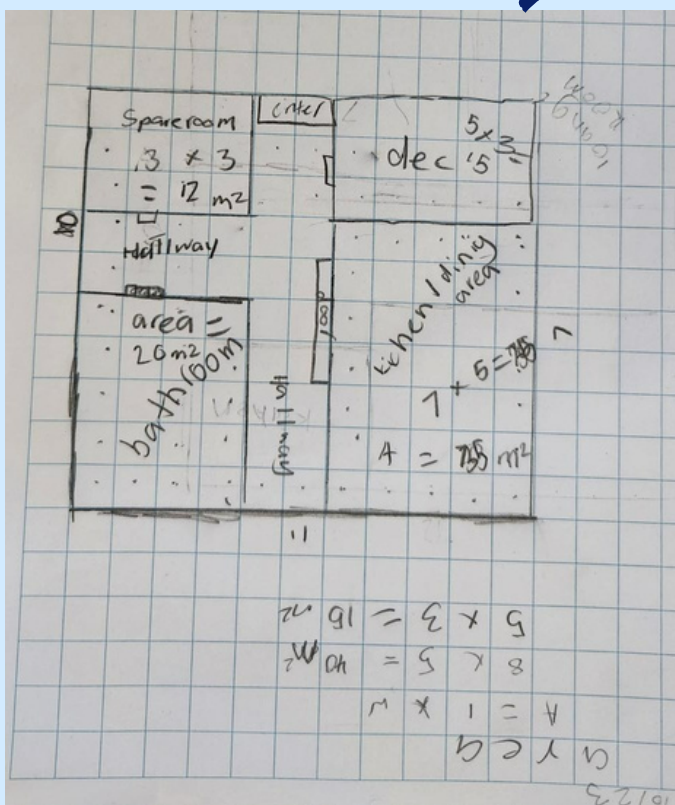 Spareroom
3 x 3
= 12 m2
enter
5 x 3 =
dec 15
Hallway
area =
20m2
bathroom
Hallway
door
kichen / dinig
area
7 x 5 = 35
A = 35 m2
7
11
Area
A = l x w
8 x 5 = 40 m2
5 x 3 = 15 m2